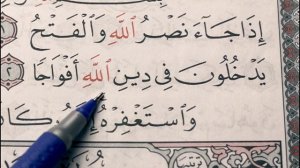 إِذَا جَآءَ نَصْرُ ٱللَّهِ وَٱلْفَتْحُ ١
يَدْخُلُونَ فِى دِينِ ٱللَّهِ أَفْوَاجًا ٢
وَٱسْتَغْفِرْهُ إِنَّهُۥ كَانَ